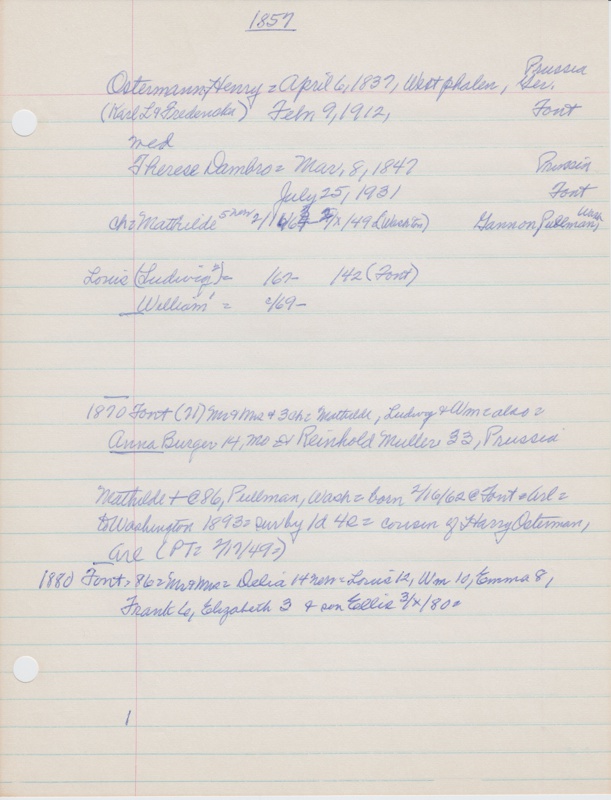 1857
Ostermann, Henry = April 6, 1837, Westphalen, Prussia Ger.
(Karl L & Fredericka) Febr 9, 1912, Font
wed
Therese Dambro = Mar, 8, 1847 Prussia
July 25, 1931 Font
ch = Mathilde 2/16/62 /x/49 Gannon, Pullman, Wash
Louis (Ludwig 2) = /67- 142 (Font)
William 1 = /69-
1870 Font (71) Mr & Mrs & 3 ch = Mathilde, Ludwig & Wm = also =
Anna Burger 14, Mo Reinhold Muller 33, Prussia
Mathilde + @ 86, Pullman, Wash = born 2/16/62 @ Font & Arc =
to Washington 1893 = sur by 1d 4s = cousin of Harry Osterman,
Arc (PT = 2/17/49=)
1880 Font, 86 = Mr & Mrs = Delia 14 = Louis 12, Wm 10, Emma 8,
Frank 6, Elizabeth 3 & son Ellis 3/x/80=
1